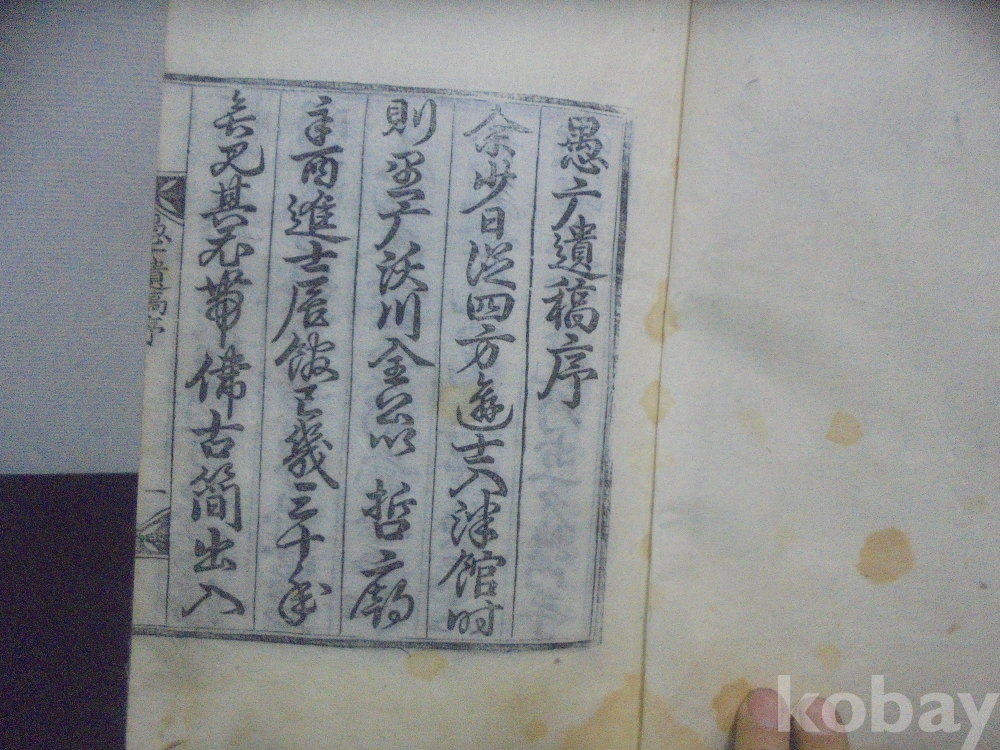 愚广遺稿序
余少日從四方遊士入泮館時
則愚广沃川全公以 哲廟
辛酉進士居館已幾三十年
矣見其帶古簡出入
愚广遺稿序 一
kobay